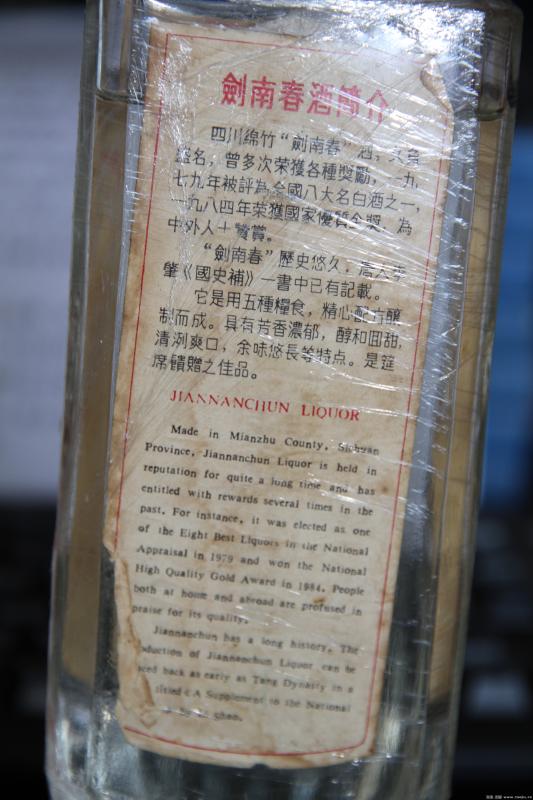 劍南春酒簡介
四川綿竹“劍南春”酒，久負
盛名，曾多次荣獲各種獎勵，一九
七九年被評為全國八大名白酒之一，
一九八四年荣獲國家優質金獎，為
中外人士贊賞。
“劍南春”歷史悠久，唐人李
肇《國史補》一書中已有記載。
它是用五種糧食，精心配方釀
制而成。具有芳香濃郁，醇和回甜，
清洌爽口，余味悠長等特点。是筵
席饋贈之佳品。
JIANNANCHUN LIQUOR
Made in Mianzhu County, Sichuan
Province, Jiannanchun Liquor is held in
reputation for quite a long time and has
entitled with rewards several times in the
past. For instance, it was elected as one
of the Eight Best Liquors in the National
Appraisal in 1979 and won the National
High Quality Gold Award in 1984. People
both at home and abroad are profused in
praise for its quality.
Jiannanchun has a long history. The
oduction of Jiannanchun Liquor can be
aced back as early as Tang Dynasty in a
titled A Supplement to the National
Shao.